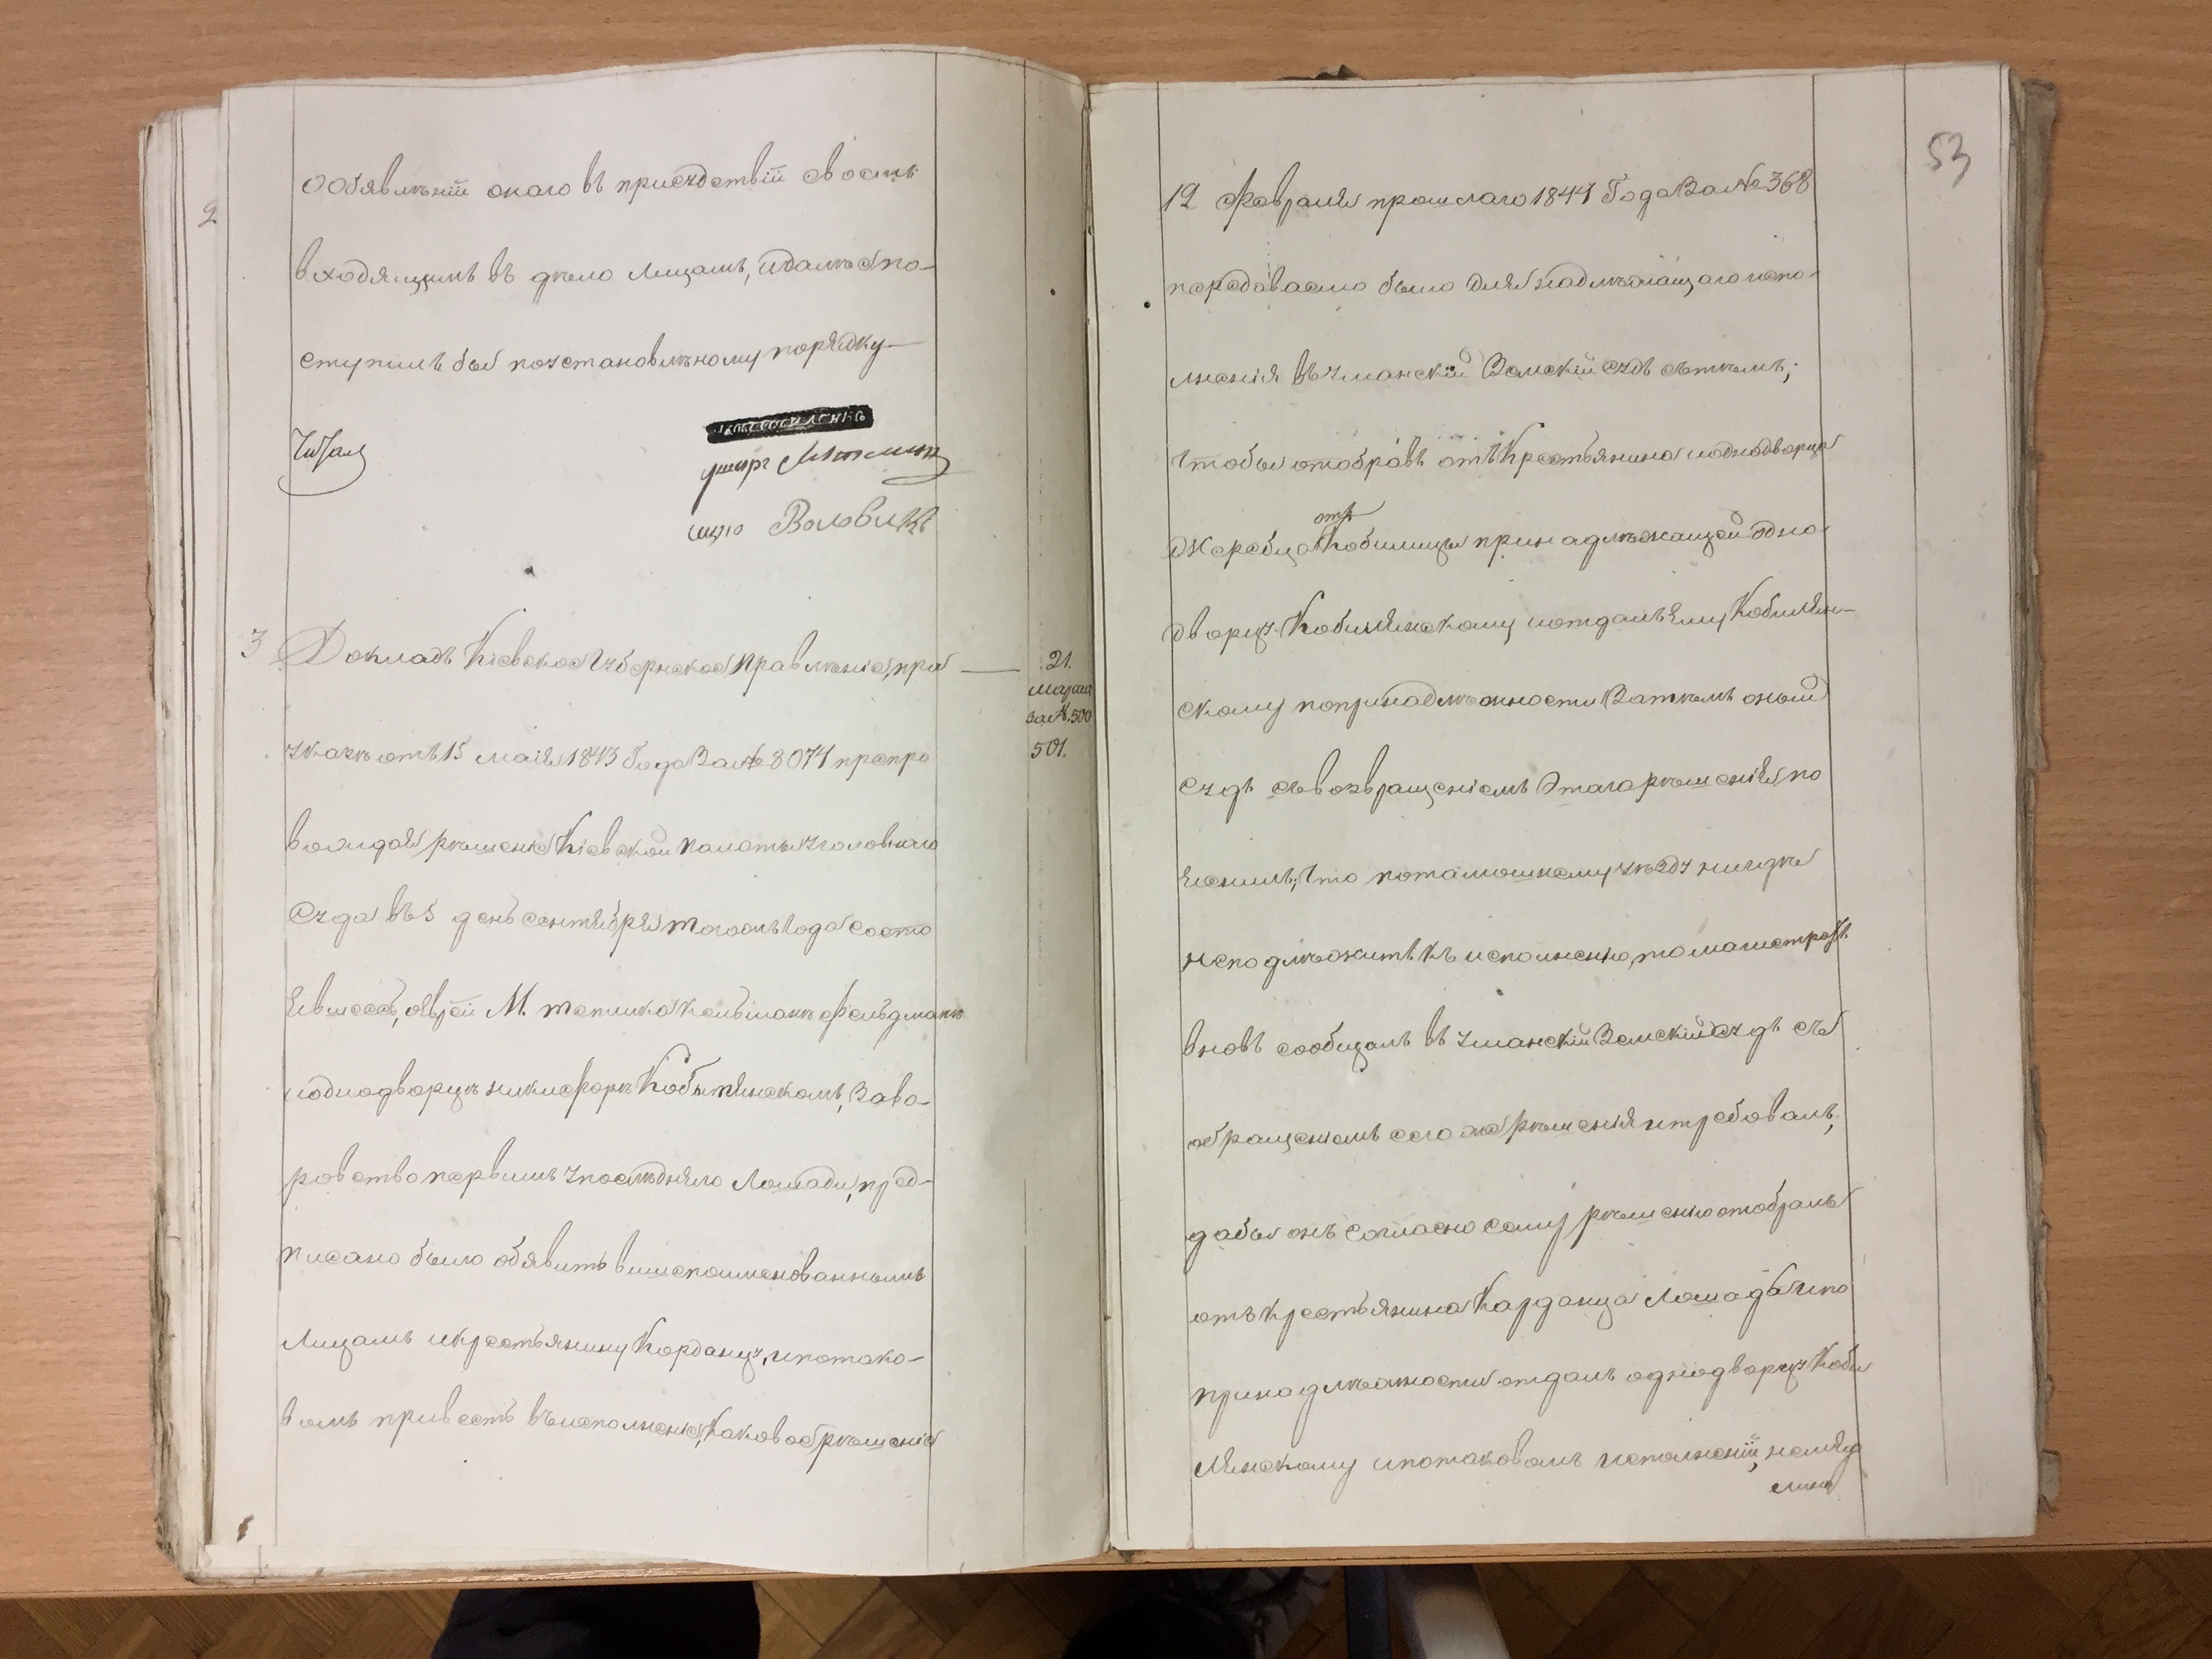 2
О обявленіи онаго въ присудствіи своемъ
входящимъ въ дело лицамъ, и далее по-
ступилъ бы поустановленому порядку
Читалъ
Воловикъ
3 Докладъ Кіевское Губернское Правленіе, при
21.
Марта
за №. 500
501.
указе отъ 15 маія 1843 Года За № 8074 препро
вождая решеніе Кіевской палаты уголовнаго
Суда въ 5 день сентября тогожъ года состо
явшеесь, о Евреи М. тетика Кельмане Фельдмане
и однодворце никифоре Кобылянскомъ, За во-
ровство первымъ у последняго Лошади, пред-
писано было обявить вишепоименованнымъ
Лицамъ и крестьянину Корданцу, и потако-
вомъ привесть въисполненіе, Каковое решеніе
53
12 Февраля прошлаго 1844 Года За № 368
передаваемо было для надлежащаго испо-
лненія въ уманскій Земскій судъ стемъ;
чтобы отобравъ отъ Крестьянина и однодворца
отъ
Жеребца Кобилицы принадлежащей одно-
дворцу Кобилянскому и отдалъ ему Кобилян-
скому попринадлежности Затемъ оный
Судъ съвозвращеніемъ Этаго решенія по
яснилъ, что потамошнему уезду нигде
неподлежитъ къ исполненію, то магистратъ
вновъ сообщалъ въ уманскій Земскій судъ съ
обращеніемъ сего же решенія и требовалъ,
дабы онъ согласно сему решенію отобралъ
отъ крестьянина Карданца Лошадь и по
принадлежности отдалъ однодворцу Коби
лянскому и потаковомъ исполненіи, немед